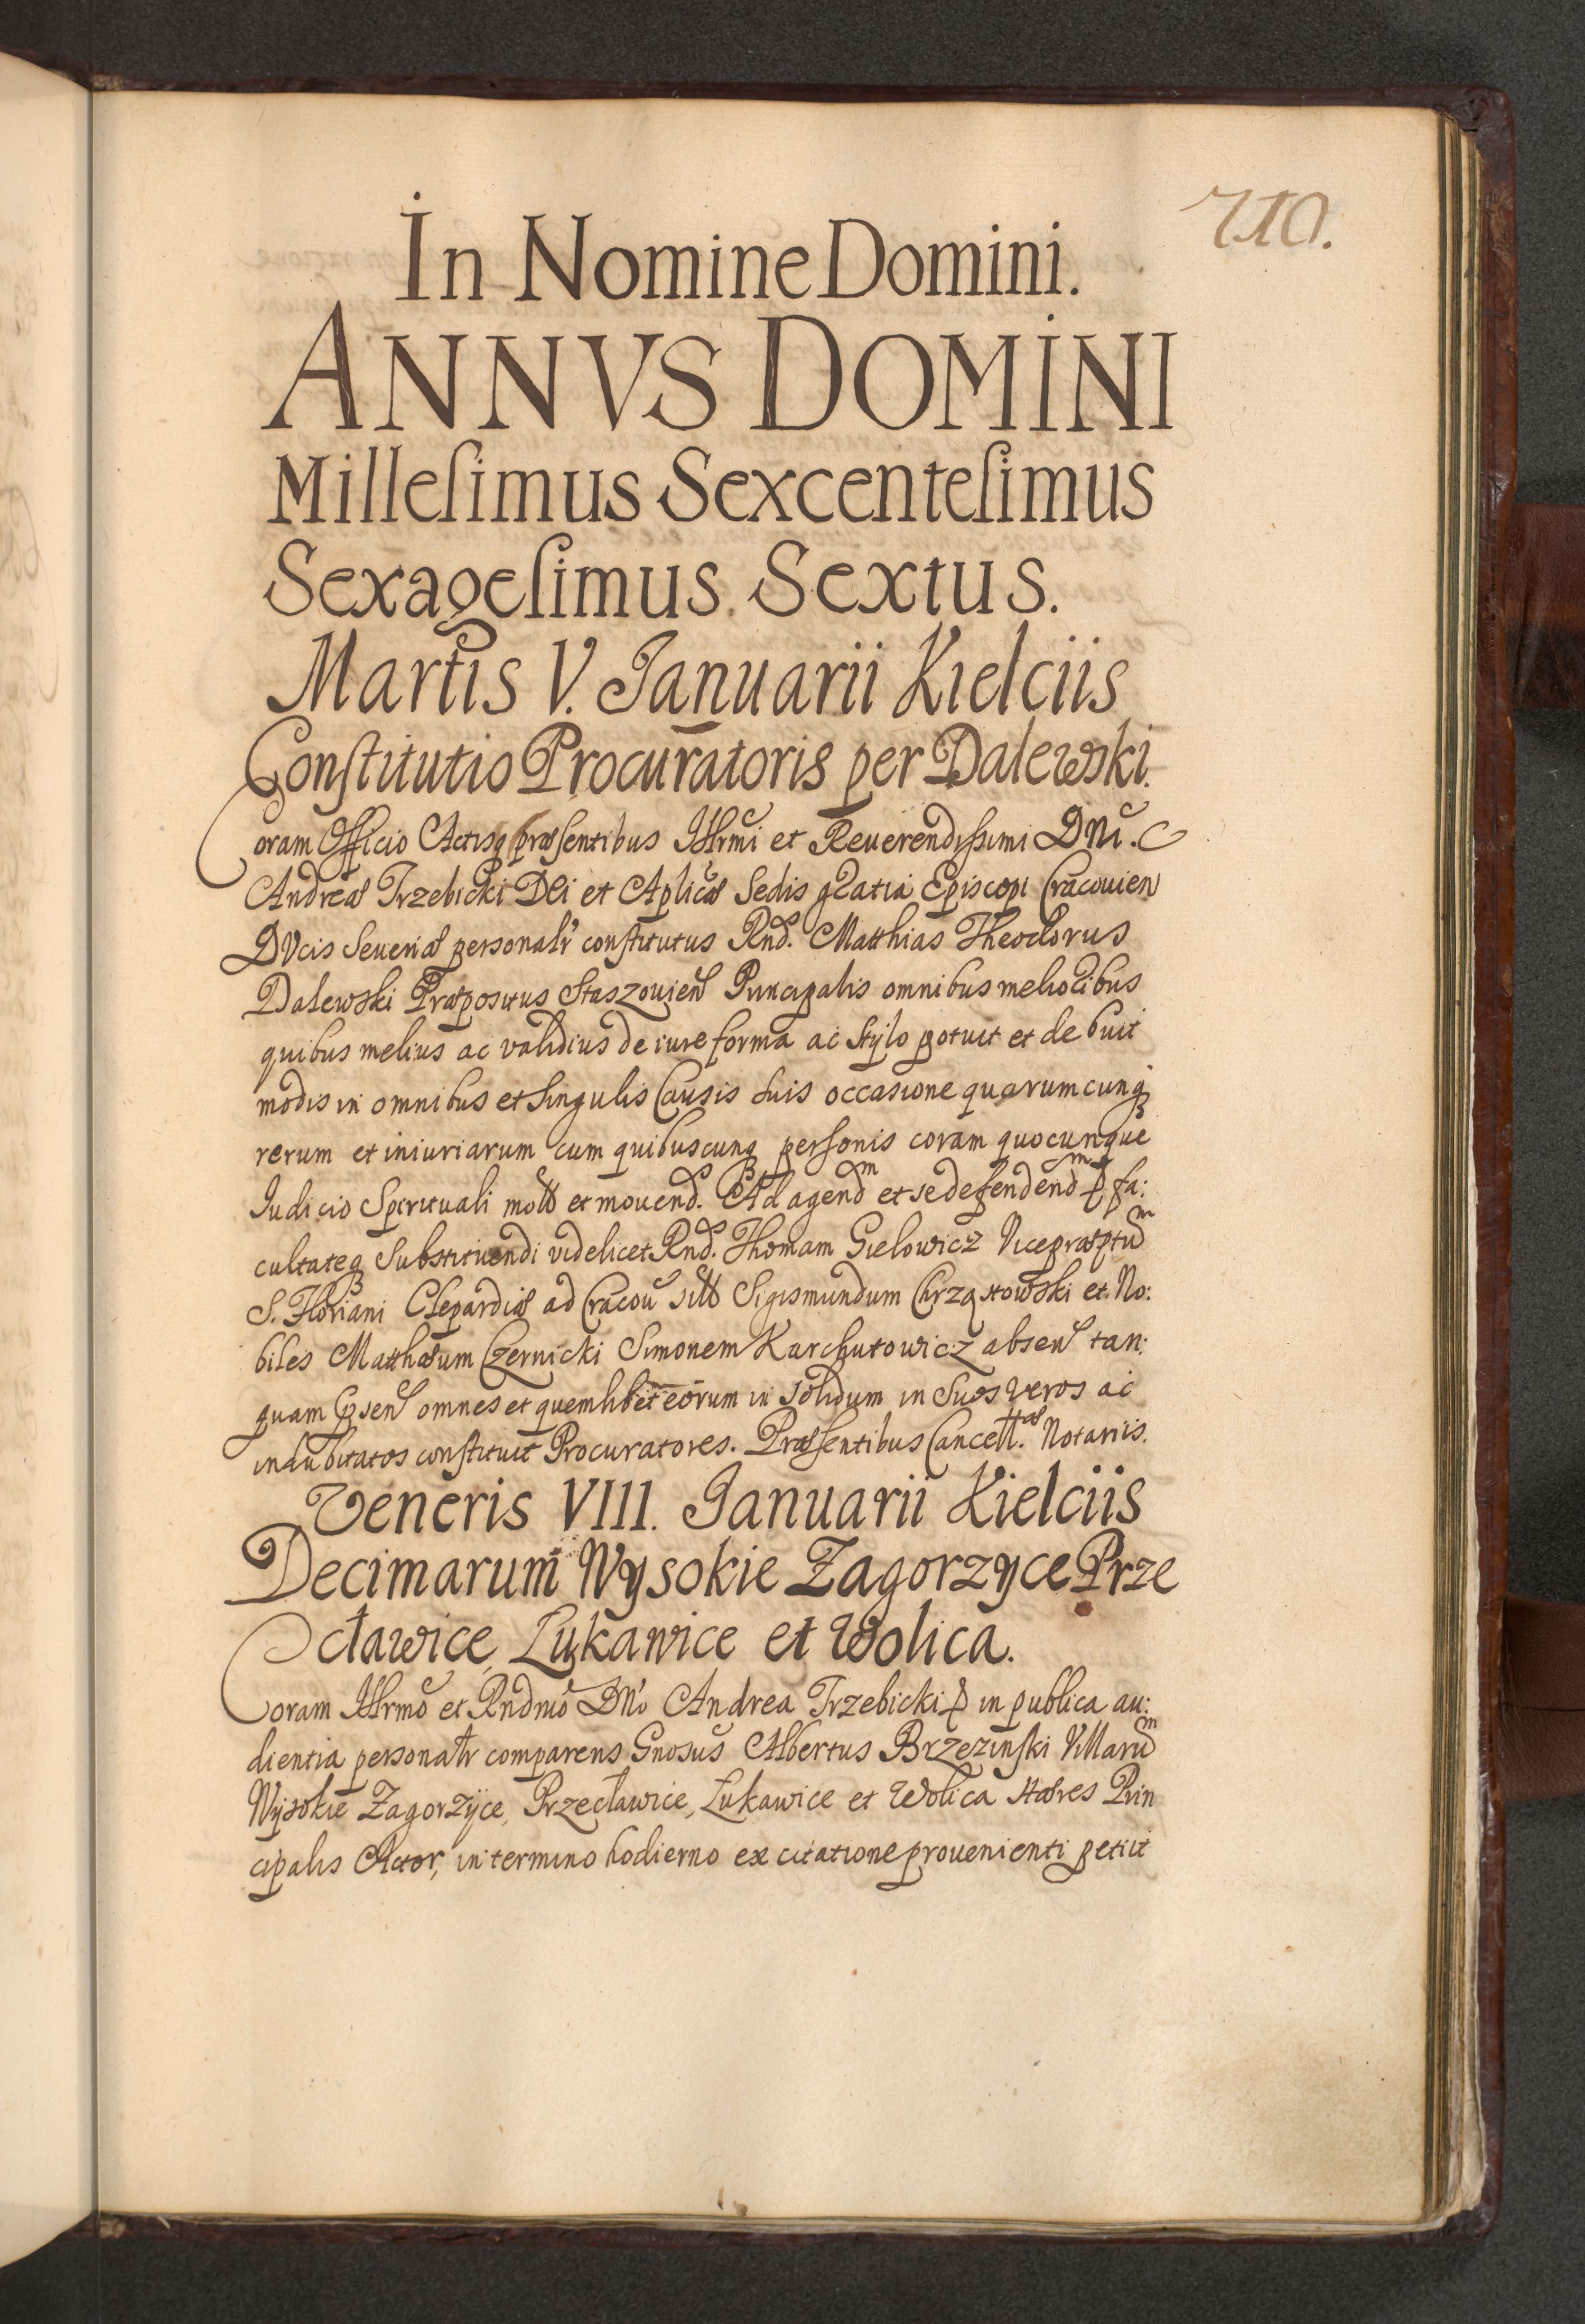 710.
In Nomine Domini.
ANNVS DOMINI
Milleſimus Sexcenteſimus
Sexageſimus Sextus.
Martis V. Ianuarii Kielciis
Conſtitutio Procuratoris per Dalewski.
Coram Officio Actisq præſentibus Illrmi et Reuerendiſsimi Dni.
Andreæ Trzebicki Dei et Aplicæ Sedis gratia Episcopi Cracouien
Ducis Seueriæ personalr conſtitutus Rnd. Matthias Theodorus
Dalewski Præpositus Staszouien Principalis omnibus melioribus
quibus melius ac validius de iure forma ac stylo potuit et debuit
modis in omnibus et singulis Causis suis occasione quarumcunq
rerum et iniuriarum cum quibuscunq perſonis coram quocunque
Iudicio Spirituali mot et mouend. Ad agendm et se defendendm fa:
cultateq substituendi videlicet Rnd. Thomam Gielowicz Vicepræptum
S. Floriani Clepardiæ ad Cracou Sigismundum Chrząstowski et No:
biles Matthæum Czernicki Simonem Karchutowicz absen tan:
quam psen omnes et quemlibet eorum in solidum in suos veros ac
indubitatos conſtituit Procuratores. Præſentibus Cancellæ. Notariis.
Veneris VIII. Ianuarii Kielciis
Decimarum Wysokie Zagorzyce Prze
cławice, Lukawice et Wolica.
Coram Illrmo et Rndmo Dno Andrea Trzebicki in publica au:
dientia personalr comparens Gnosus Albertus Brzezinſki Villarum
Wysokie Zagorzyce, Przecławice, Lukawice et Wolica Hæres Prin
cipalis Actor, in termino hodierno ex citatione prouenienti petiit